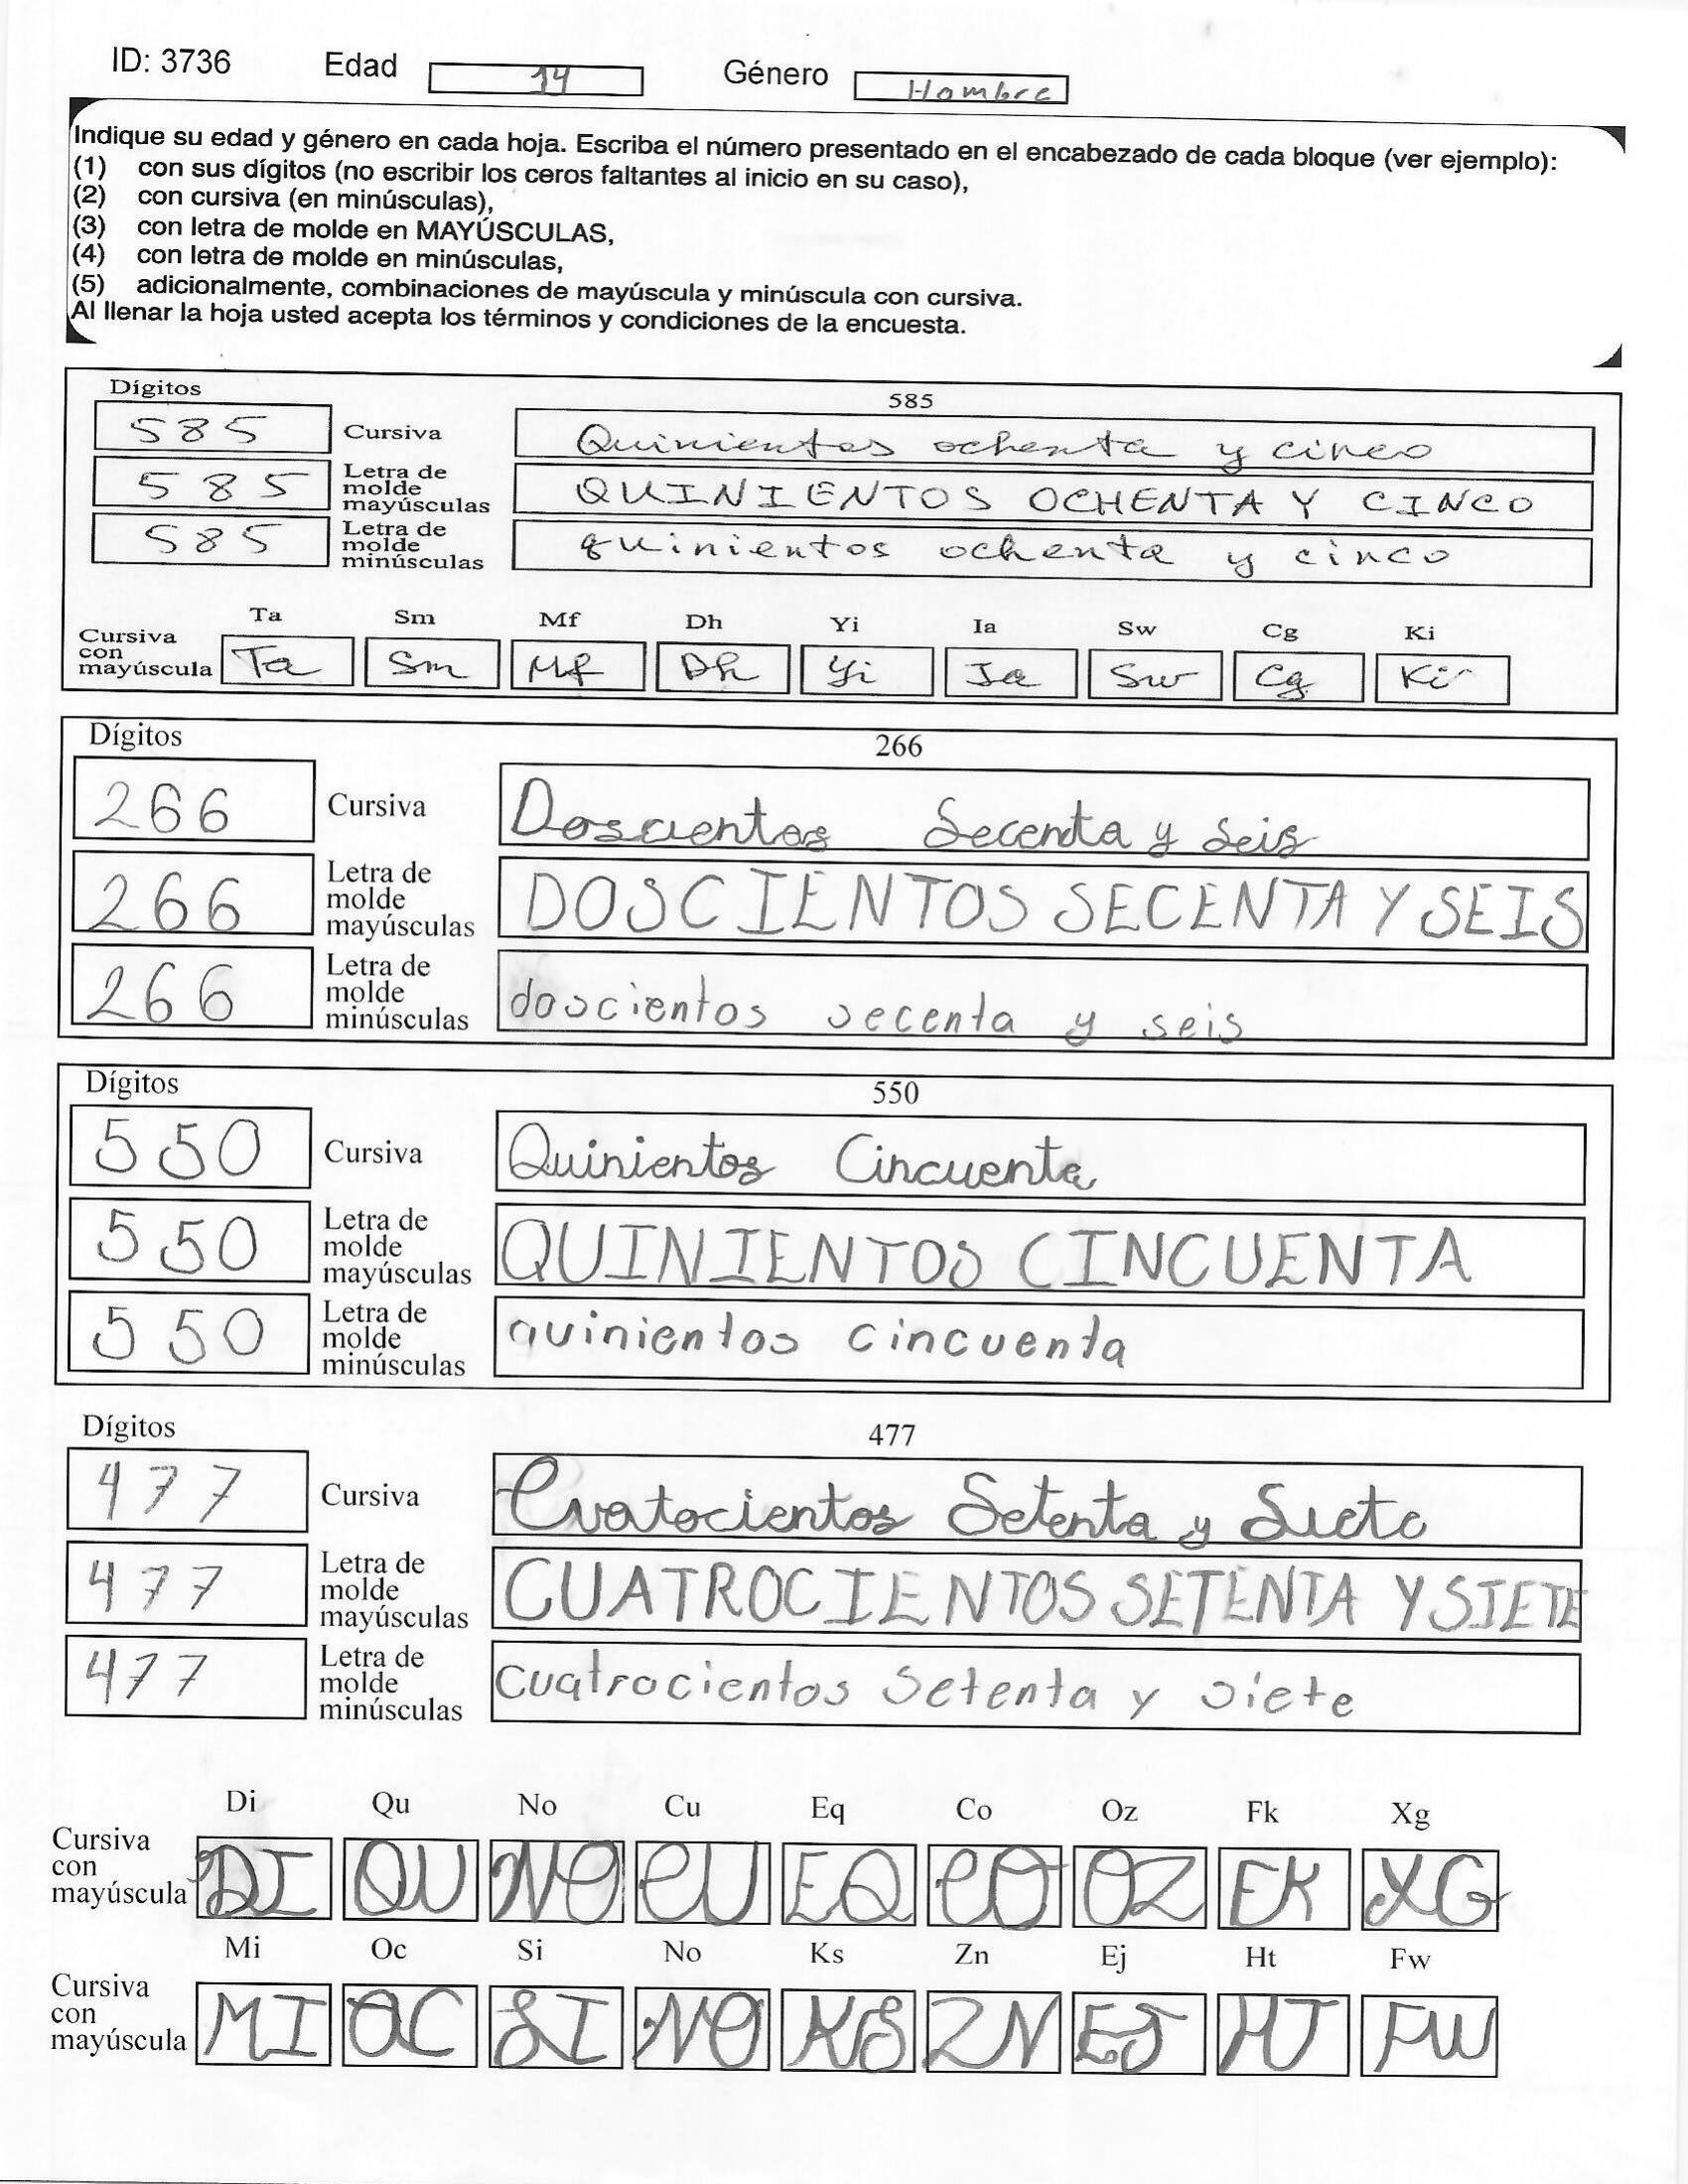 ID: 3736 Edad 14 Género Hombre
Indique su edad y género en cada hoja. Escriba el número presentado en el encabezado de cada bloque (ver ejemplo):
(1) con sus dígitos (no escribir los ceros faltantes al inicio en su caso),
(2) con cursiva (en minúsculas),
(3) con letra de molde en MAYÚSCULAS,
(4) con letra de molde en minúsculas,
(5) adicionalmente, combinaciones de mayúscula y minúscula con cursiva.
Al llenar la hoja usted acepta los términos y condiciones de la encuesta.
Dígitos 585
585 Cursiva Quinientos ochenta y cinco
585 Letra de molde mayúsculas QUINIENTOS OCHENTA Y CINCO
585 Letra de molde minúsculas quinientos ochenta y cinco
Ta Sm Mf Dh Yi Ia Sw Cg Ki
Cursiva con mayúscula Ta Sm Mf Dh Yi Ia Sw Cg Ki
Dígitos 266
266 Cursiva Doscientos Secenta y Seis
266 Letra de molde mayúsculas DOSCIENTOS SECENTA Y SEIS
266 Letra de molde minúsculas doscientos secenta y seis
Dígitos 550
550 Cursiva Quinientos Cincuenta
550 Letra de molde mayúsculas QUINIENTOS CINCUENTA
550 Letra de molde minúsculas quinientos cincuenta
Dígitos 477
477 Cursiva Cuatocientos Setenta y Siete
477 Letra de molde mayúsculas CUATROCIENTOS SETENTA Y SIETE
477 Letra de molde minúsculas cuatrocientos Setenta y siete
Di Qu No Cu Eq Co Oz Fk Xg
Cursiva con mayúscula DI QU NO CU EQ CO OZ FK XG
Mi Oc Si No Ks Zn Ej Ht Fw
Cursiva con mayúscula MI OC SI NO KS ZN EJ HT FW